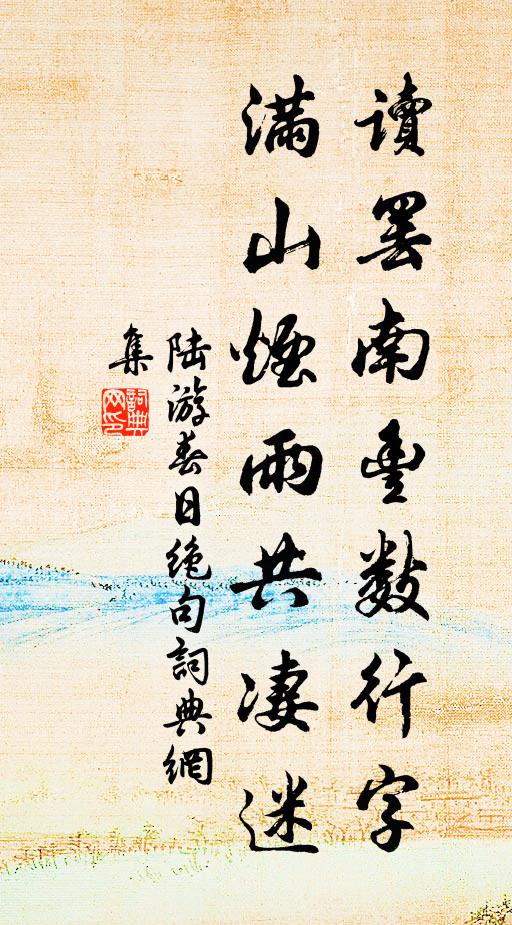 讀罷南豐數行字
滿山煙雨共凄迷
陸游春日絶句詞典網
集
詞典
网印